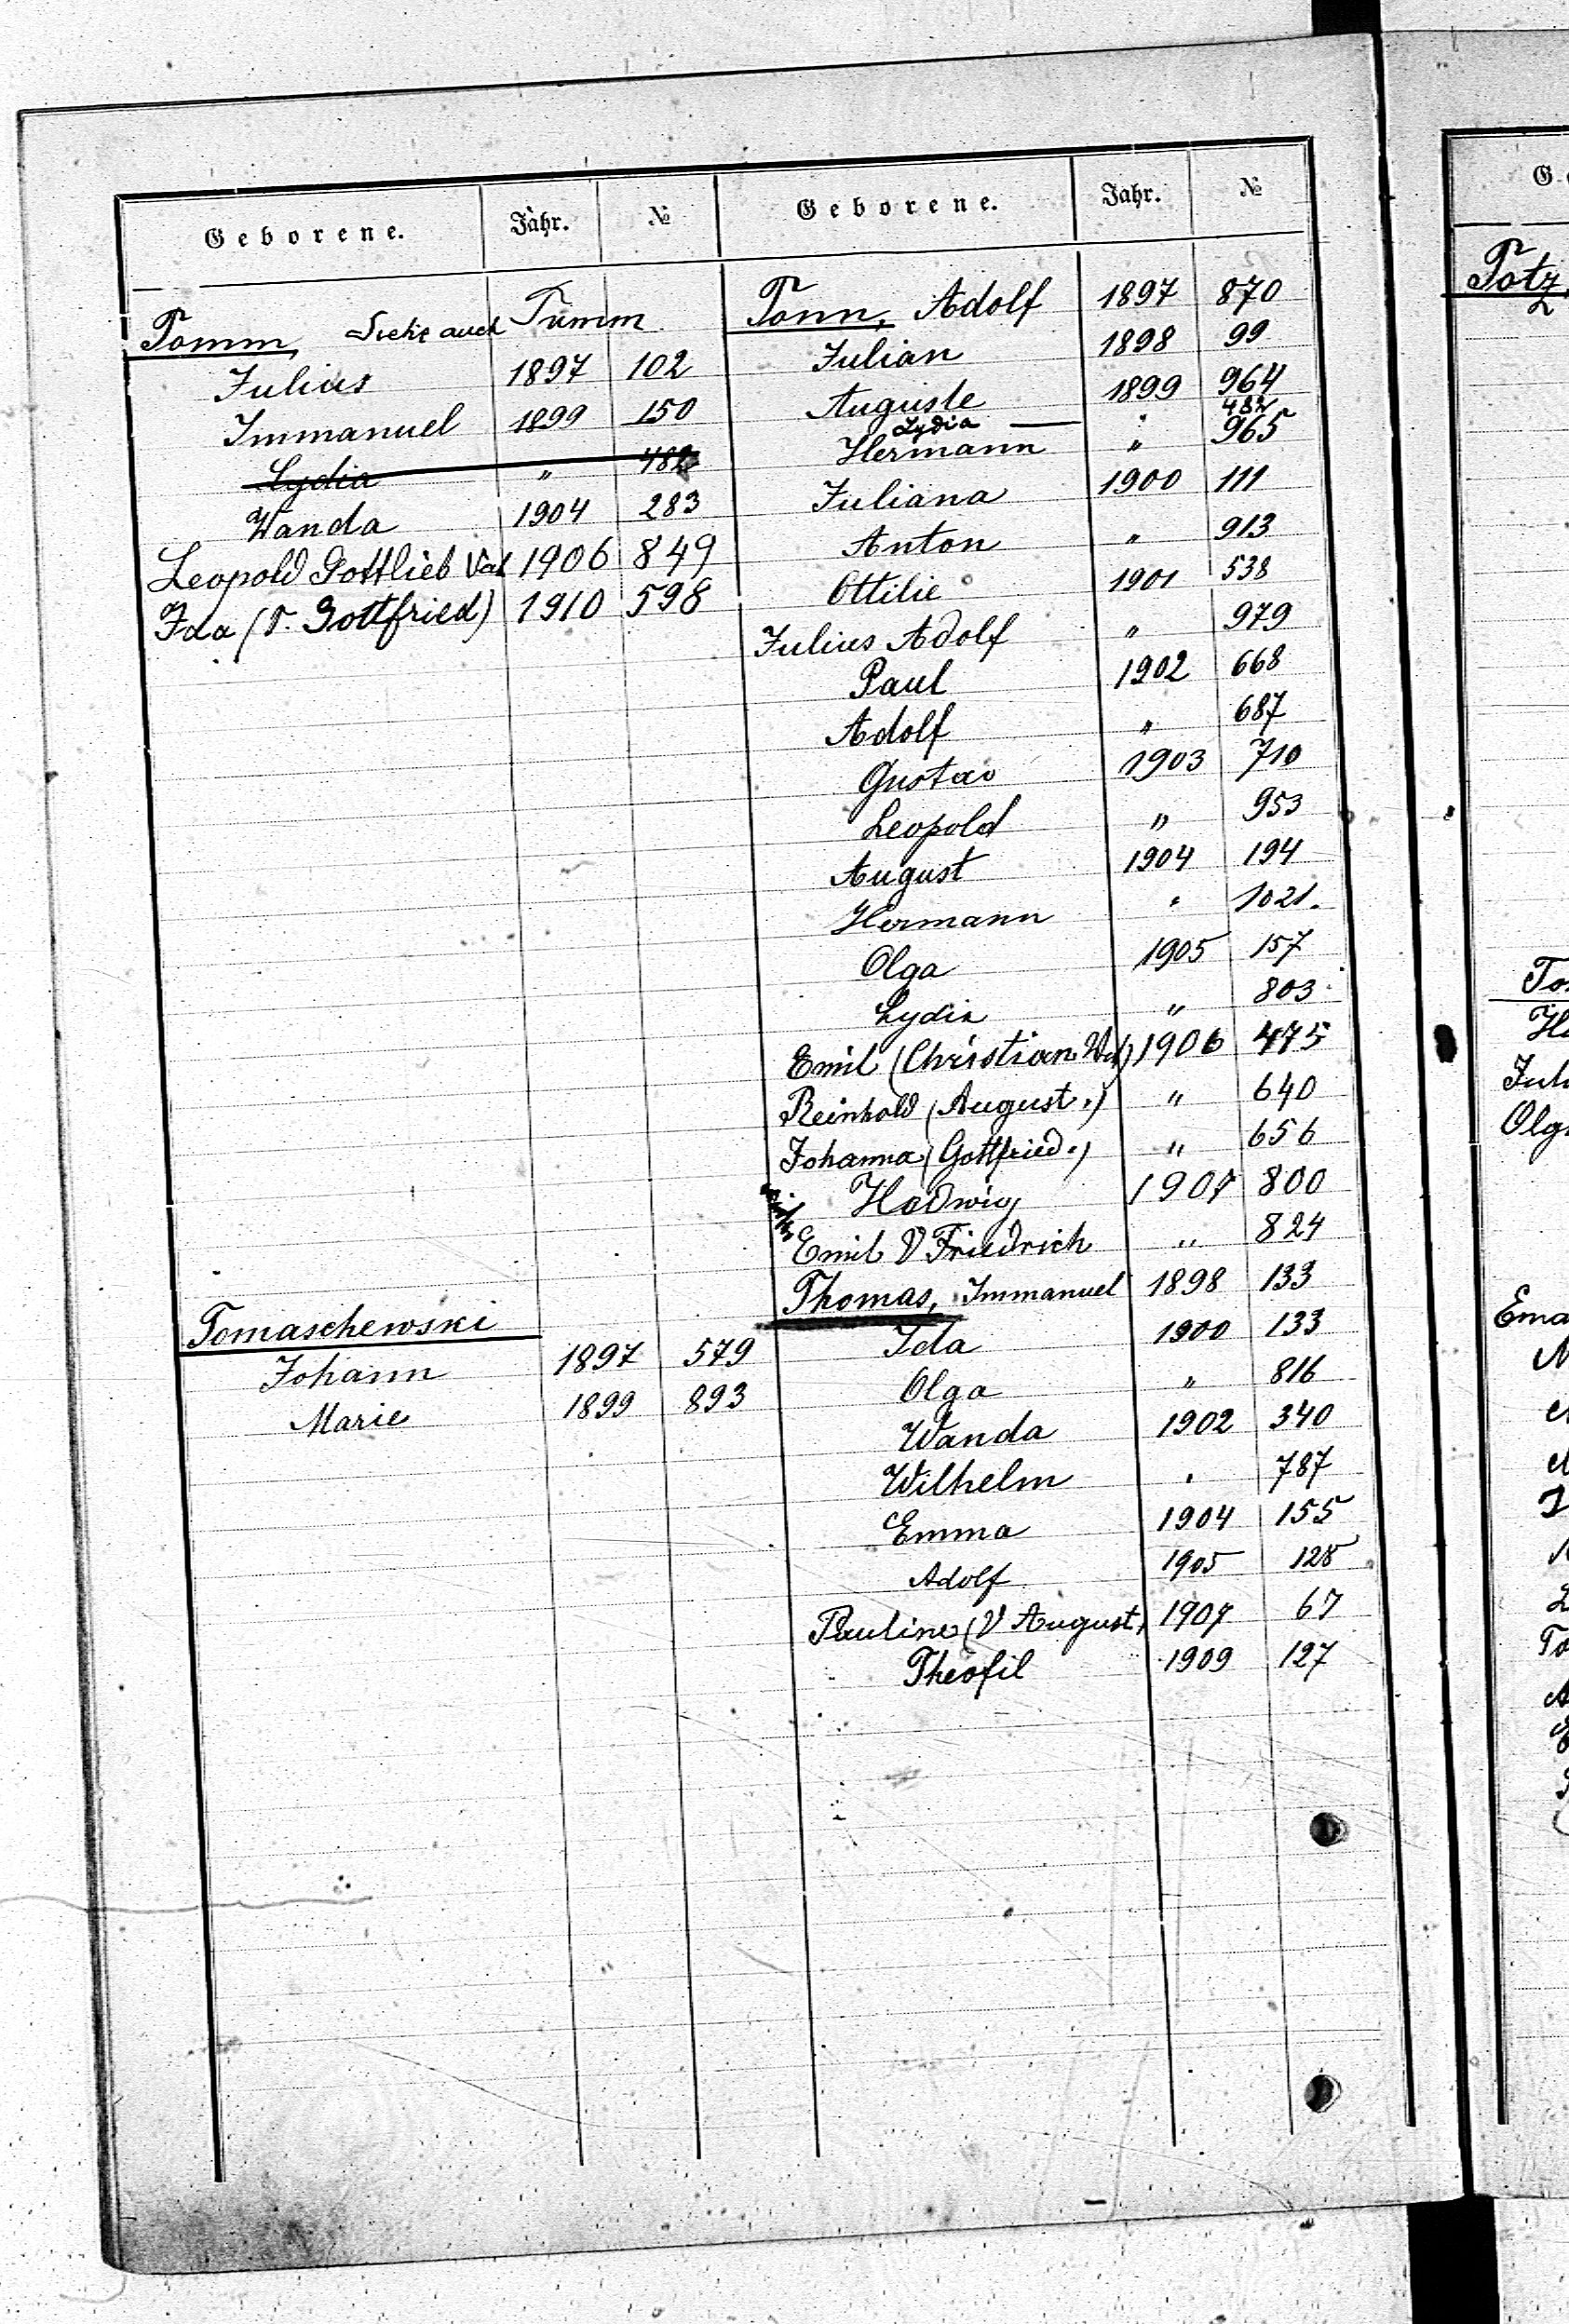 Geborene. Jahr. №
Tomm, Siehe auch Tumm
Julius 1897 102
Immanuel 1899 150
Lydia " 482
Wanda 1904 283
Leopold Gottlieb Vat 1906 849
Ida (V. Gottfried) 1910 598
Tomaschewski
Johann 1897 579
Marie 1899 893
Geborene. Jahr. №
Tonn, Adolf 1897 870
Julian 1898 99
Auguste 1899 964
Lydia — " 482
Hermann " 965
Juliana 1900 111
Anton " 913
Ottilie 1901 538
Julius Adolf " 979
Paul 1902 668
Adolf " 687
Gustav 1903 710
Leopold " 953
August 1904 194
Hermann " 1021.
Olga 1905 157
Lydia " 803
Emil (Christian Vat) 1906 475
Reinhold (August.) " 640
Johanna (Gottfried.) " 656
Hedwig 1907 800
Emil V Friedrich " 824
Thomas, Immanuel 1898 133
Ida 1900 133
Olga " 816
Wanda 1902 340
Wilhelm " 787
Emma 1904 155
Adolf 1905 128
Pauline (V August) 1907 67
Theofil 1909 127
G.
Totz,
To
He
Jul
Olg
Ema